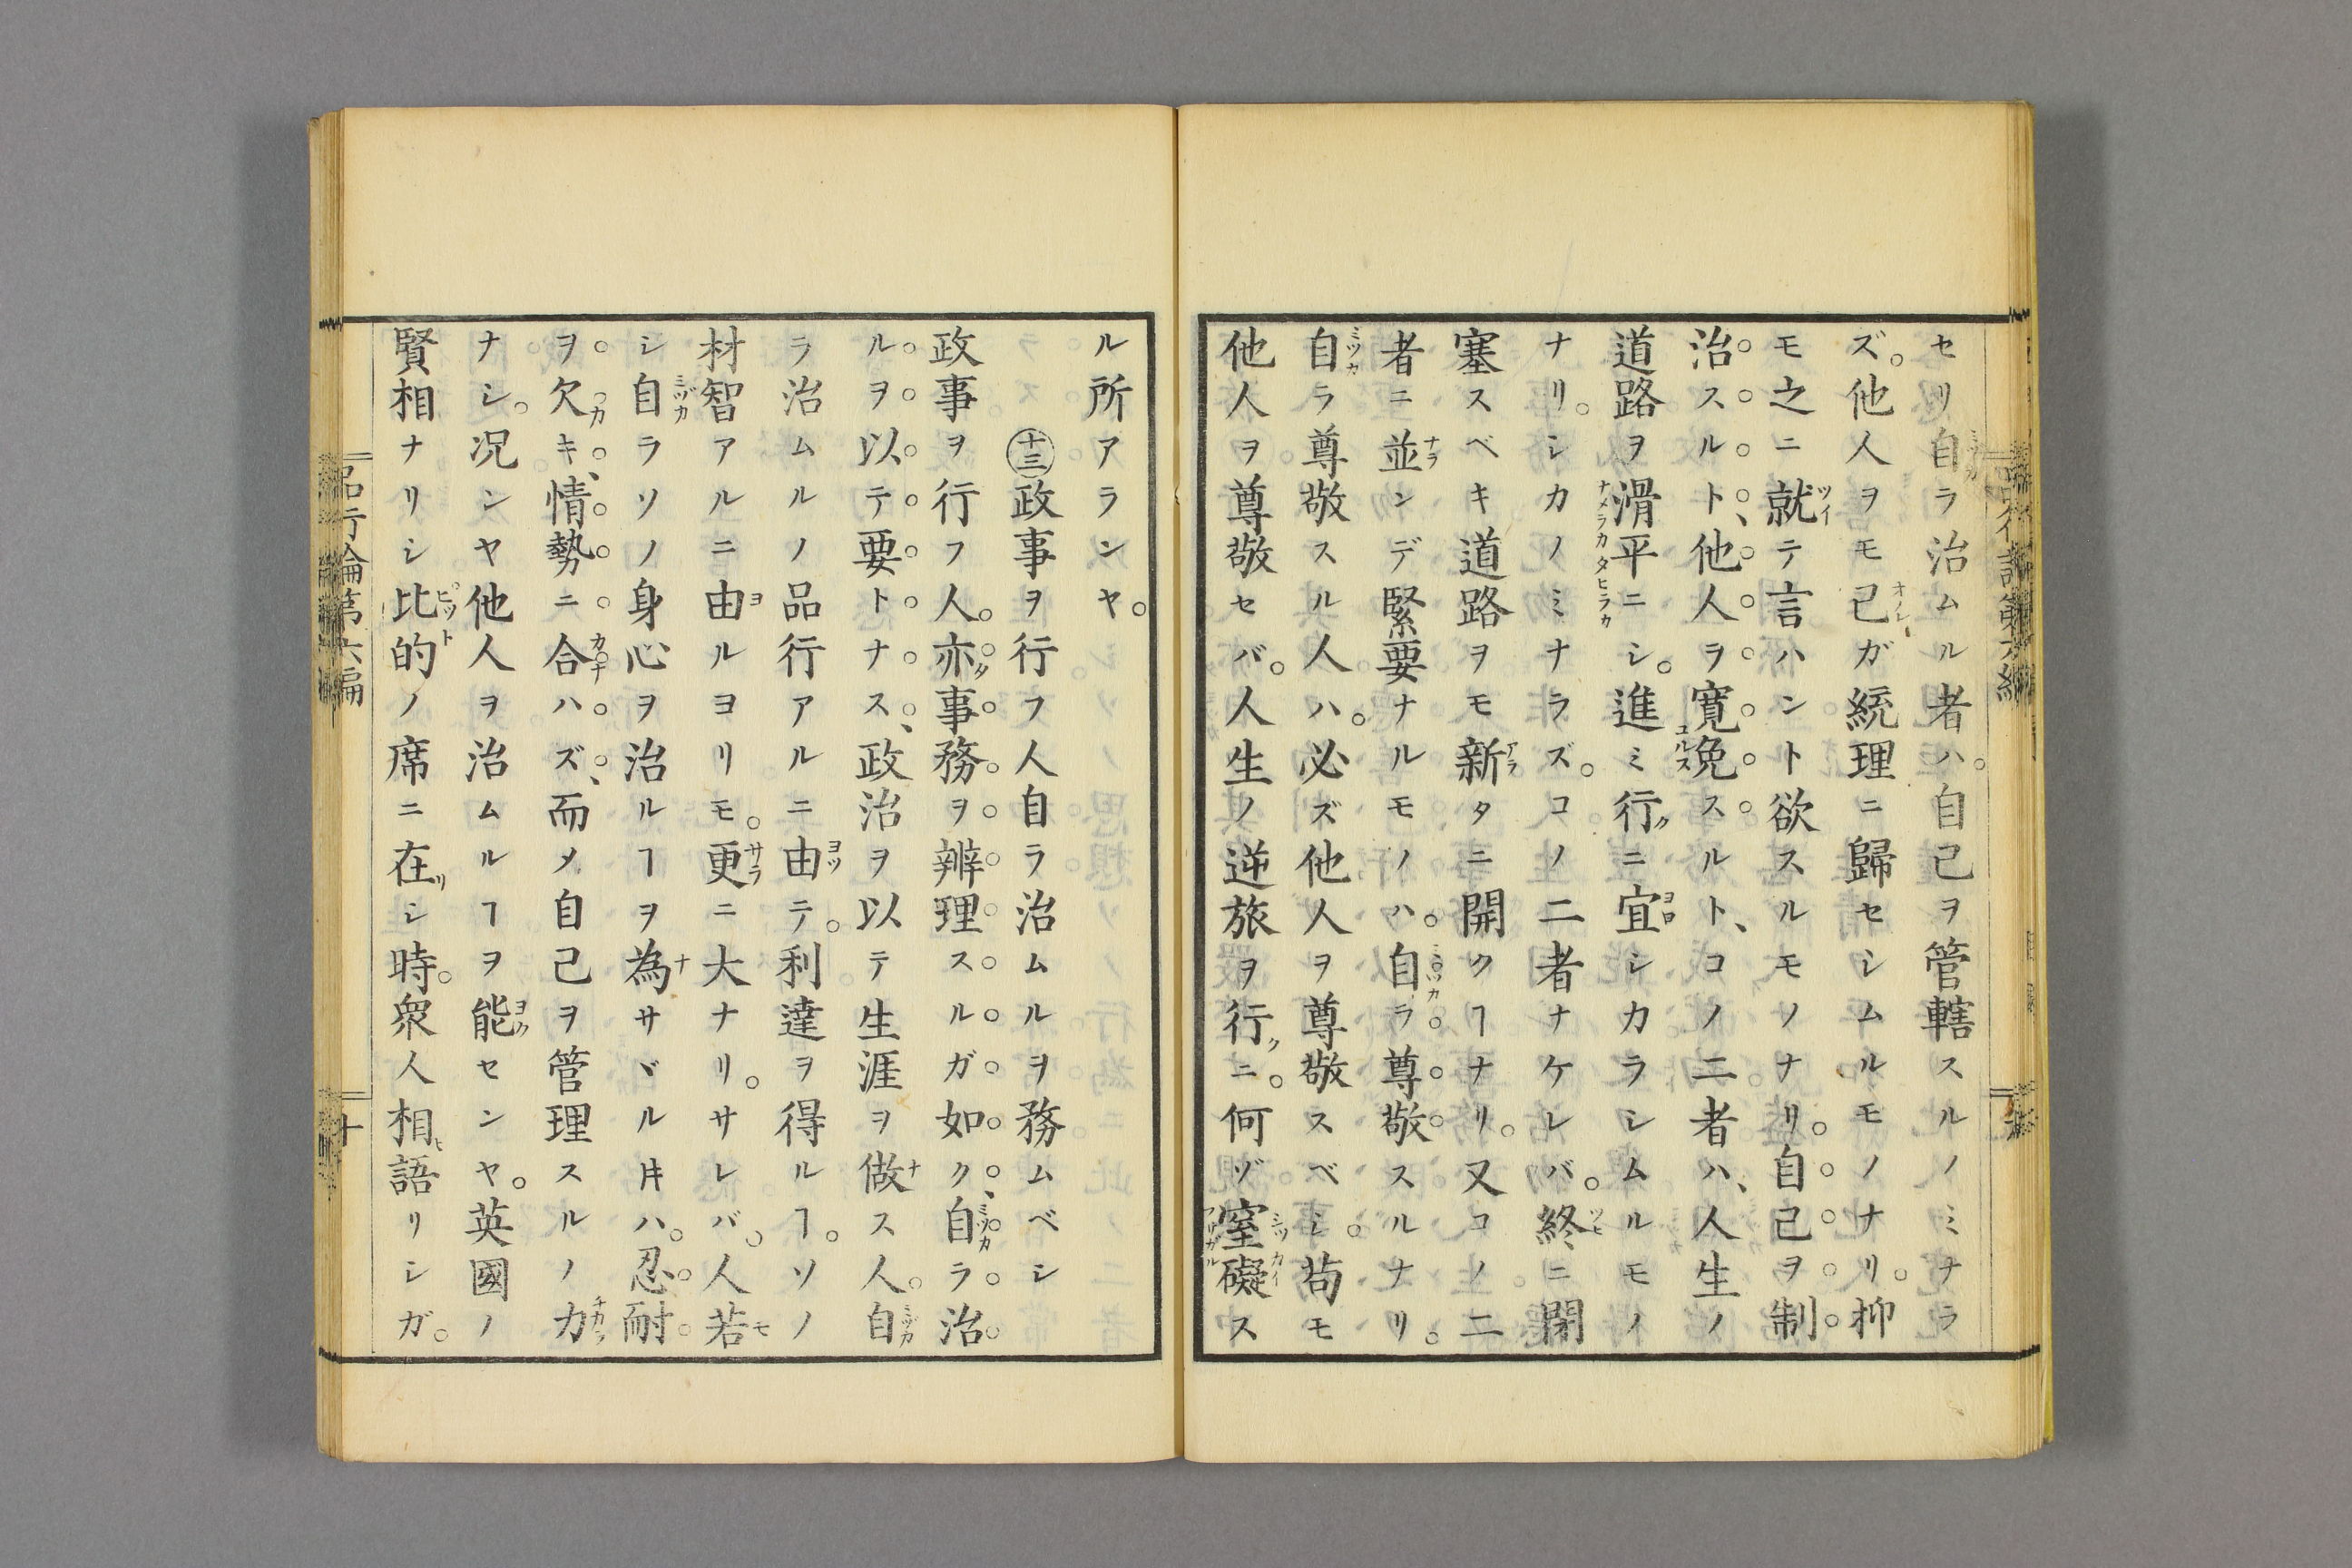 セリ自ラ治ムル者ハ。自己ヲ管轄スルノミナラ
ズ。他人ヲモ己ガ統理ニ歸セシムルモノナリ。抑
モ之ニ就テ言ハント欲スルモノナリ。自己ヲ制
治スルト、他人ヲ寛免スルト、コノ二者ハ、人生ノ
道路ヲ滑平ニシ。進ミ行クニ宜シカラシムルモノ
ナリ。シカノミナラズ。コノ二者ナケレバ。終ニ閉
塞スベキ道路ヲモ新タニ開クヿナリ。又コノ二
者ニ並ンデ緊要ナルモノハ。自ラ尊敬スルナリ。
自ラ尊敬スル人ハ。必ズ他人ヲ尊敬スベシ。苟モ
他人ヲ尊敬セバ。人生ノ逆旅ヲ行クニ。何ゾ窒礙ス
ル所アランヤ。
十三政事ヲ行フ人自ラ治ムルヲ務ムベシ
政事ヲ行フ人。亦タ事務ヲ辨理スルガ如ク、自ラ治
ルヲ以テ要トナス、政治ヲ以テ生涯ヲ做ス人。自
ラ治ムルノ品行アルニ由テ。利達ヲ得ルヿ。ソノ
材智アルニ由ルヨリモ。更ニ大ナリ。サレバ。人若
シ自ラソノ身心ヲ治ルヿヲ為サヾル𪜈ハ。忍耐
ヲ欠キ、情勢ニ合ハズ、而メ自己ヲ管理スルノ力
ナシ。况ンヤ他人ヲ治ムルヿヲ能センヤ。英國ノ
賢相ナリシ比的ノ席ニ在リシ時。衆人相ヒ語リシガ。
品行論第六編
十